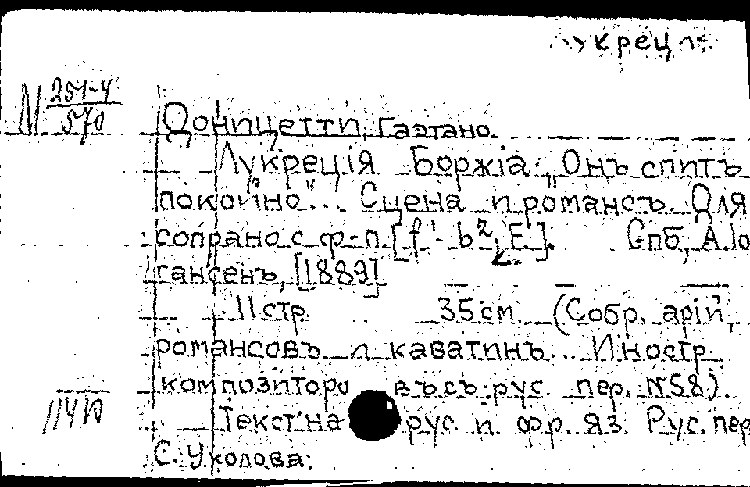 Лукреция
М 251-4
570
Доницетти, Гаэтано.
Лукреція Боржіа „Онъ спитъ
покойно"... Сцена и романсъ. Для
сопрано с ф-п. [f¹- b², E]. Спб, А. Ио
гансенъ, [1889]
11 стр 35 см (Собр. арій,
романсовъ и каватинъ... Иностр
композиторо въ съ рус пер. №58).
Текст на рус и фр. яз. Рус. пер
С. Уколова.